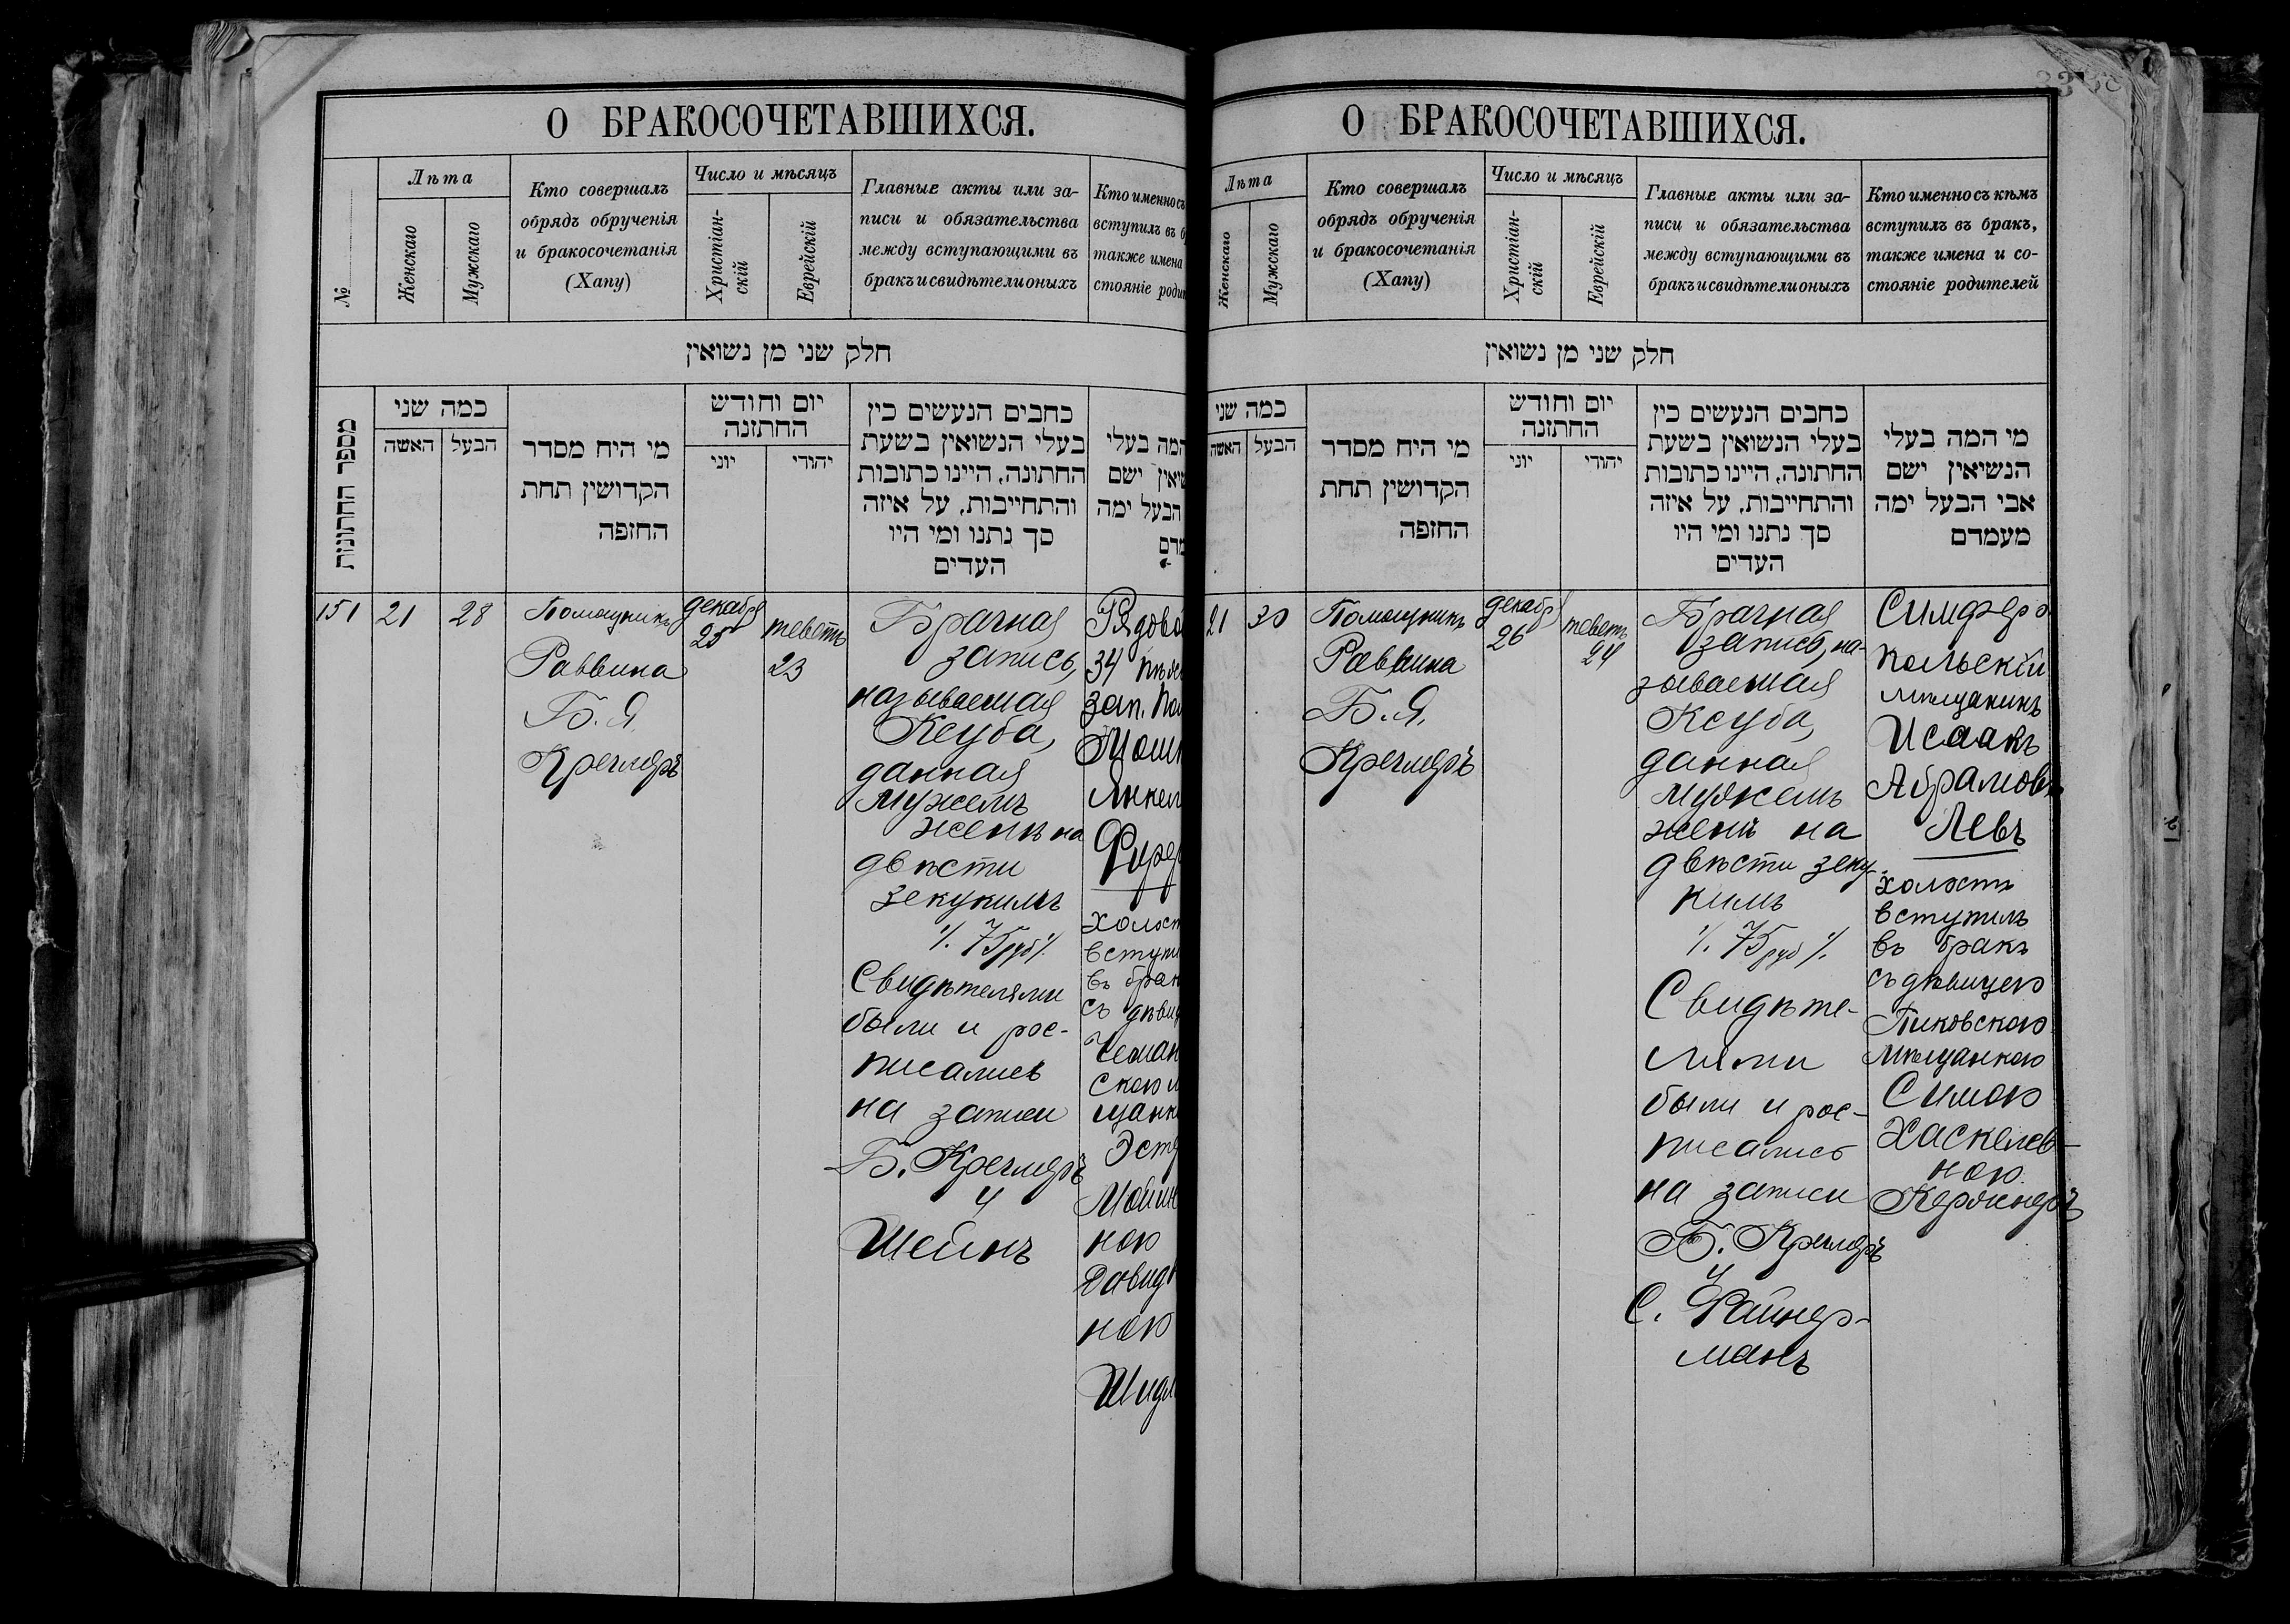 О БРАКОСОЧЕТАВШИХСЯ.
№
Лѣта
Женскаго
Мужскаго
Кто совершалъ
обрядъ обрученія
и бракосочетанія
(Хапу)
Число и мѣсяцъ
Христіан-
скій
Еврейскій
Главные акты или за-
писи и обязательства
между вступающими въ
бракъ и свидѣтели оныхъ
Кто именно съ
вступилъ въ б
также имена
стояніе роди
חלק שני מן נשואין
מספר החתונות
כמה שני
האשה
הבעל
מי היח מסדר
הקדושין תחת
החופה
יום וחודש
החתונה
יוני
יהודי
כחבים הנעשים כין
בעלי הנשואין בשעת
החתונה, היינו כתובות
והתחייבות, על איזה
סך נתנו ומי היו
העדים
המה בעלי
שיאין ישם
הבעל ימה
מדם
151
21
28
Помощникъ
Раввина
Б. Я.
Кречмеръ
декабр
25
теветъ
23
Брачная
запись,
называемая
Ксуба,
данная
мужемъ
женѣ на
двѣсти
зекукимъ
·/. 75 руб ·/.
Свидѣтелями
были и рос-
писались
на записи
Б. Кречмеръ
и
Шейнъ
Рядово
34 пѣх
зап.
Мош
Янкел
холост
вступи
въ брак
съ дѣви
скою м
щанк
Эст
ною
Давид
ною
О БРАКОСОЧЕТАВШИХСЯ.
Лѣта
Женскаго
Мужскаго
Кто совершалъ
обрядъ обрученія
и бракосочетанія
(Хапу)
Число и мѣсяцъ
Христіан-
скій
Еврейскій
Главные акты или за-
писи и обязательства
между вступающими въ
бракъ и свидѣтели оныхъ
Кто именно съ кѣмъ
вступилъ въ бракъ,
также имена и со-
стояніе родителей
חלק שני מן נשואין
כמה שני
האשה
הבעל
מי היח מסדר
הקדושין תחת
החופה
יום וחודש
החתונה
יוני
יהודי
כחבים הנעשים כין
בעלי הנשואין בשעת
החתונה, היינו כתובות
והתחייבות, על איזה
סך נתנו ומי היו
העדים
מי המה בעלי
הנשיאין ישם
אבי הבעל ימה
מעמדם
21
30
Помощникъ
Раввина
Б. Я.
Кречмеръ
декабр
26
теветъ
24
Брачная
запись, на-
зываемая
Ксуба,
данная
мужемъ
женѣ на
двѣсти зеку-
кимъ
·/. 75 руб ·/.
Свидѣте-
лями
были и рос-
писались
на записи
Б. Кречмеръ
и
С. Файнер-
манъ
Симферо
польскій
мѣщанинъ
Исаакъ
Абрамовъ
Левъ
холостъ
вступилъ
въ бракъ
съ дѣвицею
Пиковскою
мѣщанкою
Симою
Хаскелев-
ною
Кержнеръ